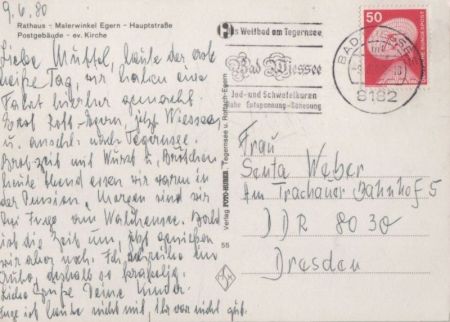 9.6.80
Rathaus - Malerwinkel Egern - Hauptstraße
Postgebäude - ev. Kirche
Liebe Muttel, heute der erste
heiße Tag, wir haben eine
Fahrt hierher gemacht.
Erst Rott-Egern, jetzt Wiessee
u. anschl. nach Tegernsee.
Brotzeit mit Wurst u. Brötchen,
heute Abend essen wir warm in
der Pension. Morgen sind wir
am Walchensee. Bald
ist die Zeit um, jetzt genießen
wir aber noch.
Ruhe, deshalb so krakelig.
Liebe Grüße Deine Kinder.
Inge ist heute nicht mit, ihr war nicht gut.
Verlag FOTO-HUBER, Tegernsee u. Rottach-Egern
55
Weltbad am Tegernsee
Bad Wiessee
Jod- und Schwefelkuren
Entspannung-Genesung
BAD WIESSEE
8182
50
DEUTSCHE BUNDESPOST
Frau
Senta Weber
Am Trachauer Bahnhof 5
DDR 8030
Dresden